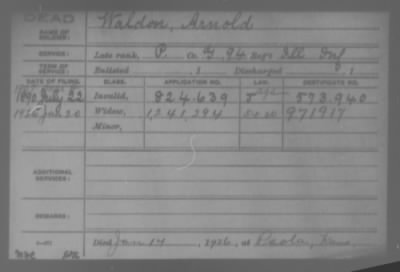 DEAD
NAME OF SOLDIER: Waldon, Arnold
SERVICE: Late rank, P. Co. G, 94 Reg't Ill Inf
TERM OF SERVICE: Enlisted , 1 Discharged , 1
DATE OF FILING. CLASS. APPLICATION NO. LAW. CERTIFICATE NO.
1890 July 22 Invalid, 824.639 573.940
Jan 20 Widow, 1,241,294 971917
Minor,
ADDITIONAL SERVICES:
REMARKS:
Died Jan 14, 1926, at Paola, Kans.